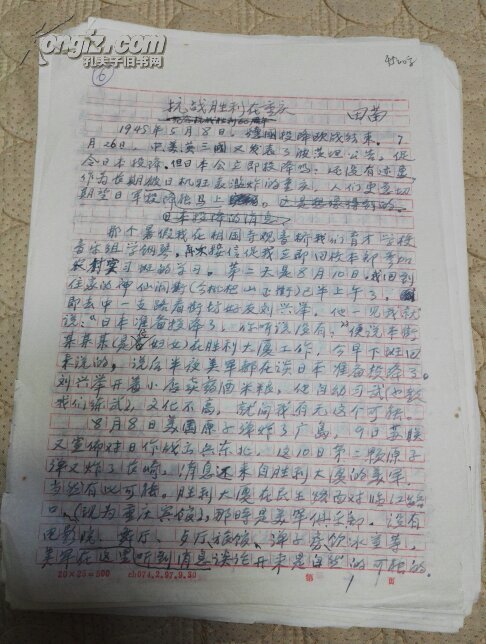 kongfz.com
孔夫子旧书网
6
4500字
抗战胜利在重庆
纪念抗战胜利60周年
田苗
1945年5月8日,德国投降欧战结束。7
月26日,中美英三國又发表了波茨坦公告。促
令日本投降。但日本会立即投降吗?还没有迹象
作为长期被日机狂轰滥炸的重庆,人们更急切
期望日军投降能马上
日本投降的消息
那个暑假我在相国寺观音桥我们育才学校
音乐组学钢琴。接信促我立即回校本部参加
文化班的学习。第二天是8月10日。我回到
住家的神仙洞街(今枇杷山正街)已半上午了。
即去中一支路看街坊好友刘兴泽。他一见我就
说:"日本准备投降了,你听说没有,"便说本街
某某某(是 的女)在胜利大厦工作,今早下班回
来说的,说后半夜美军都在谈日本准备投降了。
刘兴泽开着小店卖 酒米粮,他自幼习武(也教
我们练武),文化不高,就问我有无这个可能。
8月8日美国原子弹炸了广岛,9日苏联
又宣佈对日作战出兵东北,这10日第二颗原子
弹又炸了长崎,消息还来自胜利大厦的美军,
当然有此可能。胜利大厦在民生路西对临江路
口,(现为重庆宾馆),那时是美军俱乐部,设有
电影院、舞厅、餐厅旅馆、弹子房饮冰室等,
美军在这里听到消息谈论开来是自然的可能的。
20×25=500 ch074.2.97.9.30 第 1 页